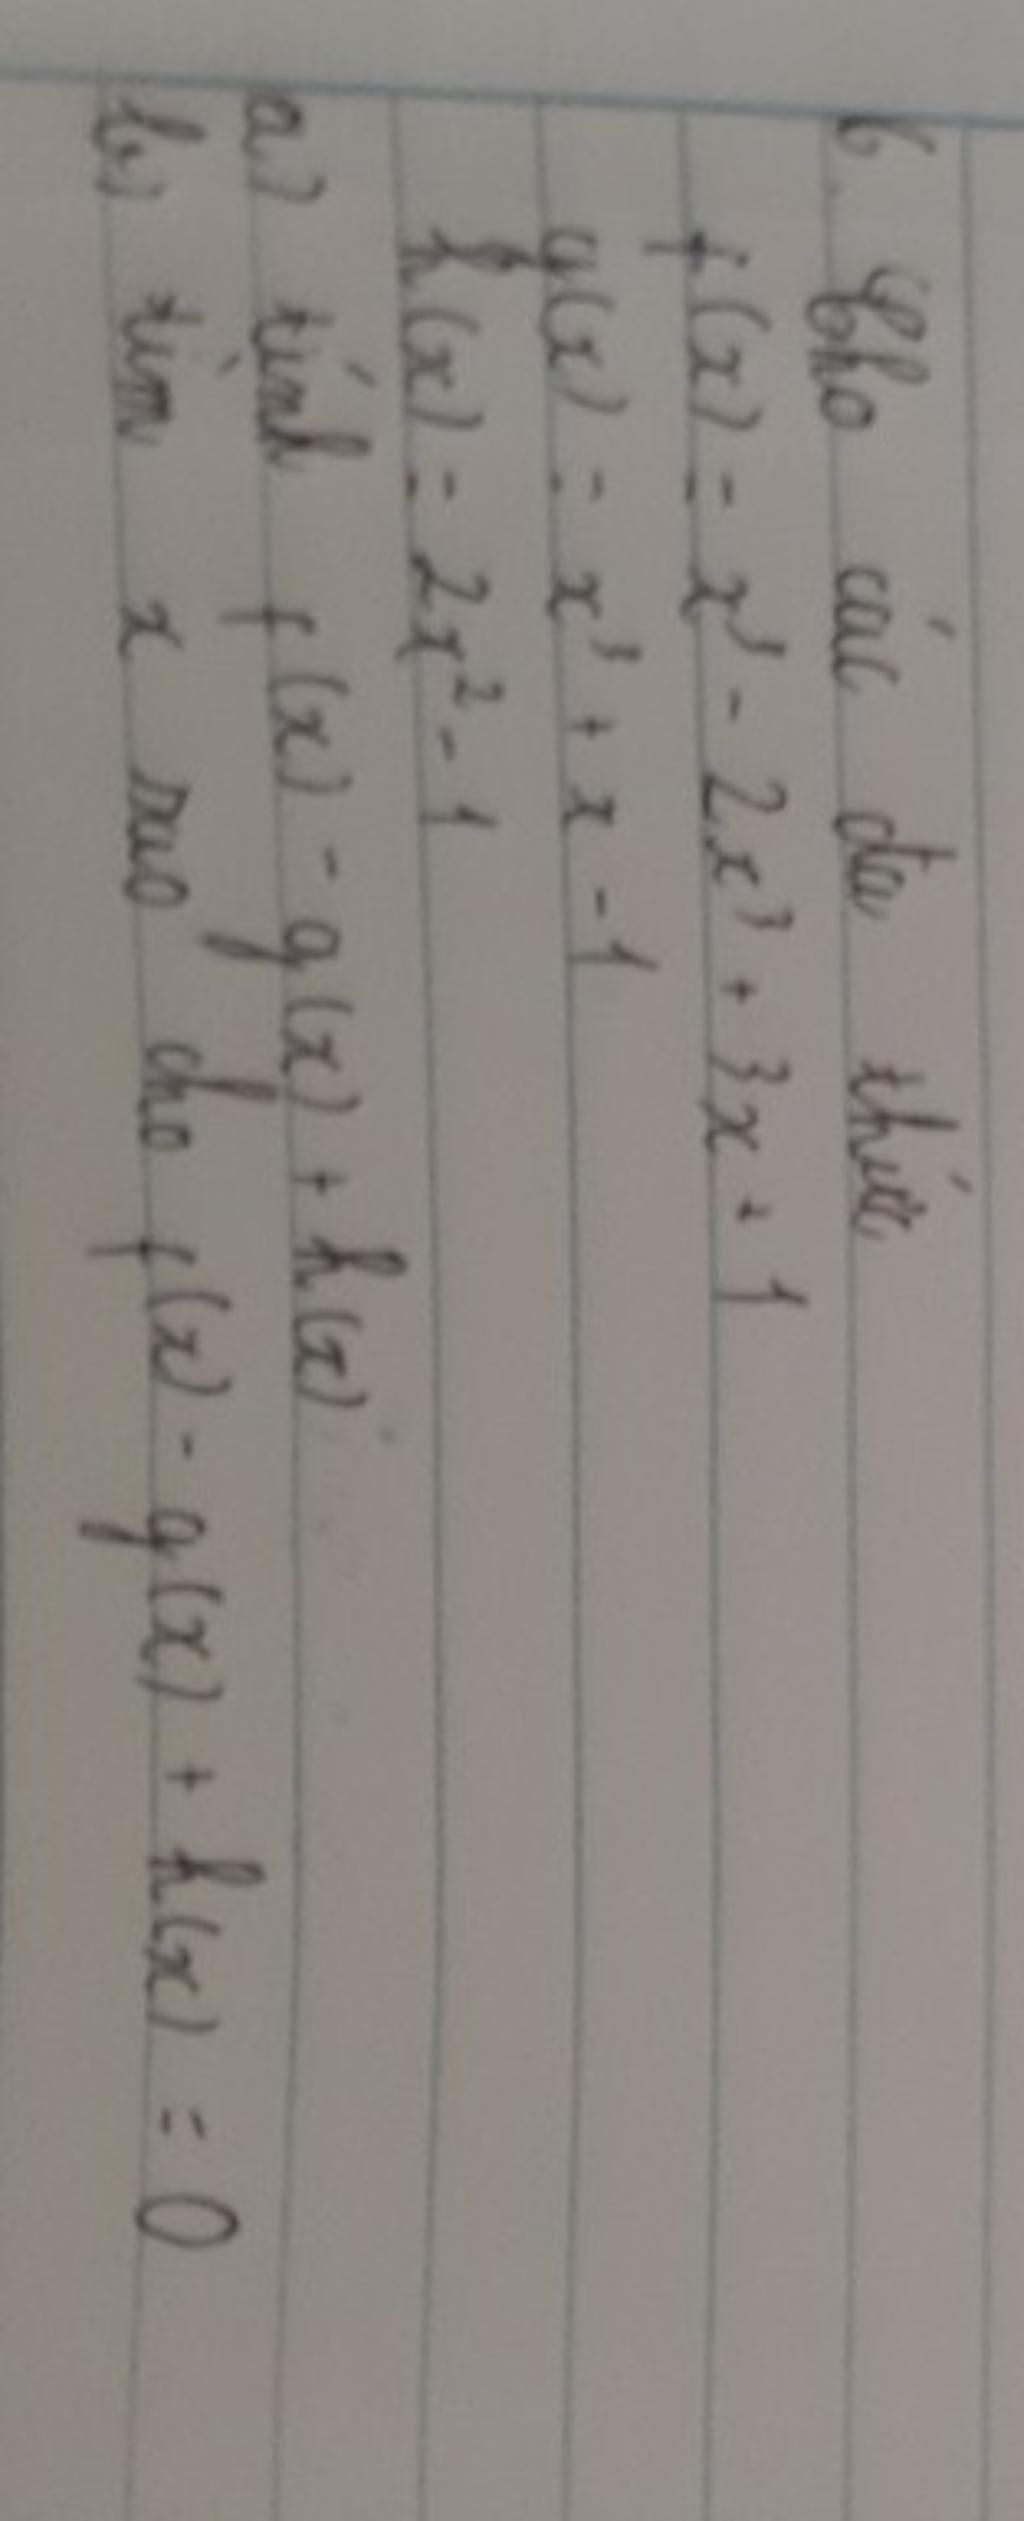 6. Cho các đa thức
f(x) = x³ - 2x³ + 3x + 1
g(x) = x³ + x - 1
h(x) = 2x² - 1
a) tính f(x) - g(x) + h(x)
b) tìm x sao cho f(x) - g(x) + h(x) = 0